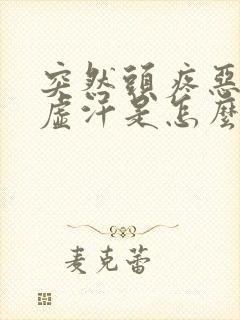 突然頭疼惡
虛汗是怎麼
麦克蕾